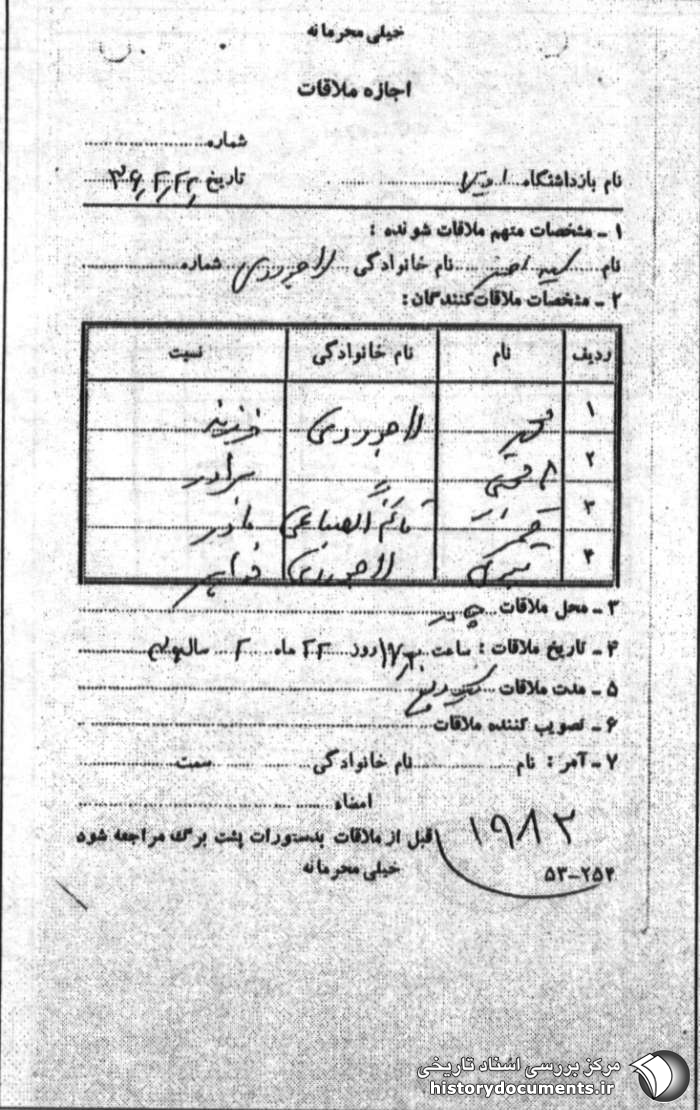 خیلی محرمانه
اجازه ملاقات
شماره
نام بازداشتگاه اوین تاریخ ۳۶٫۲٫۲۲
۱ - مشخصات متهم ملاقات شونده :
نام سید نام خانوادگی لاجوردی شماره
۲ - مشخصات ملاقات‌کنندگان :
ردیف نام نام خانوادگی نسبت
۱ لاجوردی فرزند
۲ مرتضی " برادر
۳ قائم الصباحی مادر
۴ لاجوردی خواهر
۳ - محل ملاقات
۴ - تاریخ ملاقات : ساعت روز ۲۲ ماه ۲ سال
۵ - مدت ملاقات
۶ - تصویب کننده ملاقات
۷ - آمر : نام نام خانوادگی سمت
امضاء
۱۹۸۳
قبل از ملاقات بدستورات پشت برگ مراجعه شود
۵۳-۲۵۴
خیلی محرمانه
مرکز بررسی اسناد تاریخی
historydocuments.ir